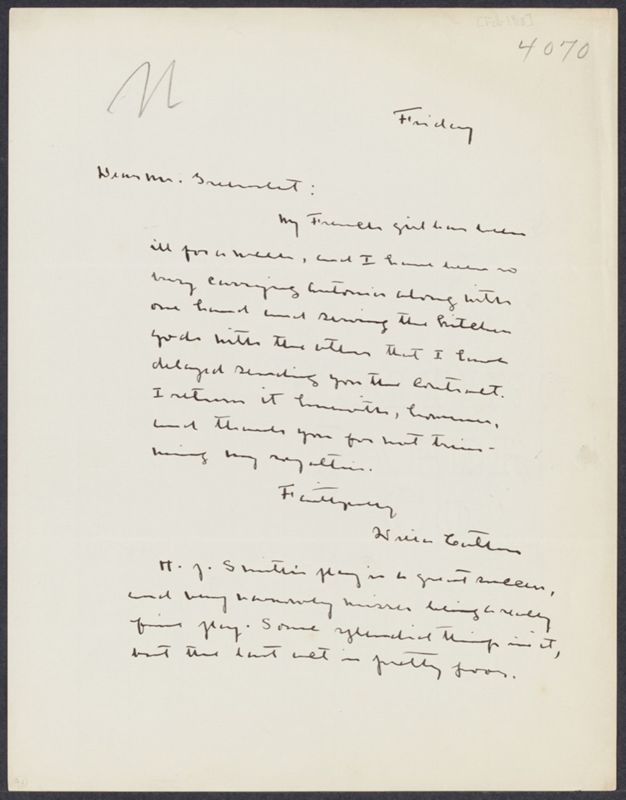 4070
Friday
Dear Mr. Greenslet:
My French girl has been
ill for a week, and I have been so
busy carrying Antonia along with
one hand and serving the kitchen
gods with the other that I have
delayed sending you the contract.
I return it herewith, however,
and thank you for not trim-
ming my royalties.
Faithfully
Willa Cather
H. J. Smith's play is a great success,
and very narrowly misses being a really
fine play. Some splendid things in it,
but the last act is pretty poor.